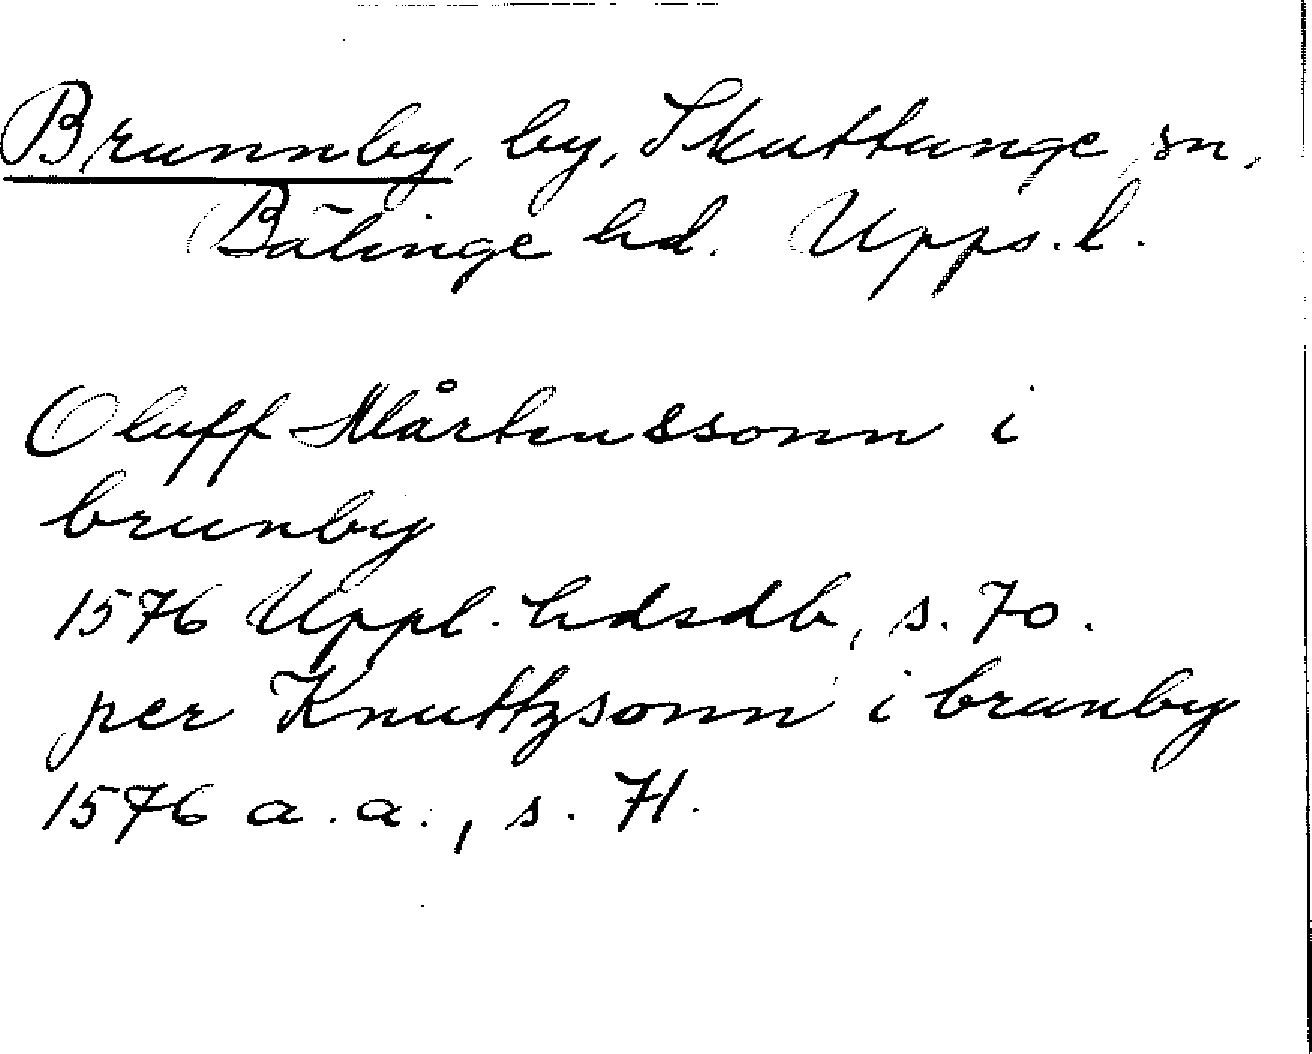 Brunnby, by, Skuttunge sn,
Bälinge hd. Upps. l.
Oluff Mårtenssonn i
brunby
1576 Uppl. hdsdb, s. 70.
per Knuttzsonn i brunby
1576 a.a., s. 71.